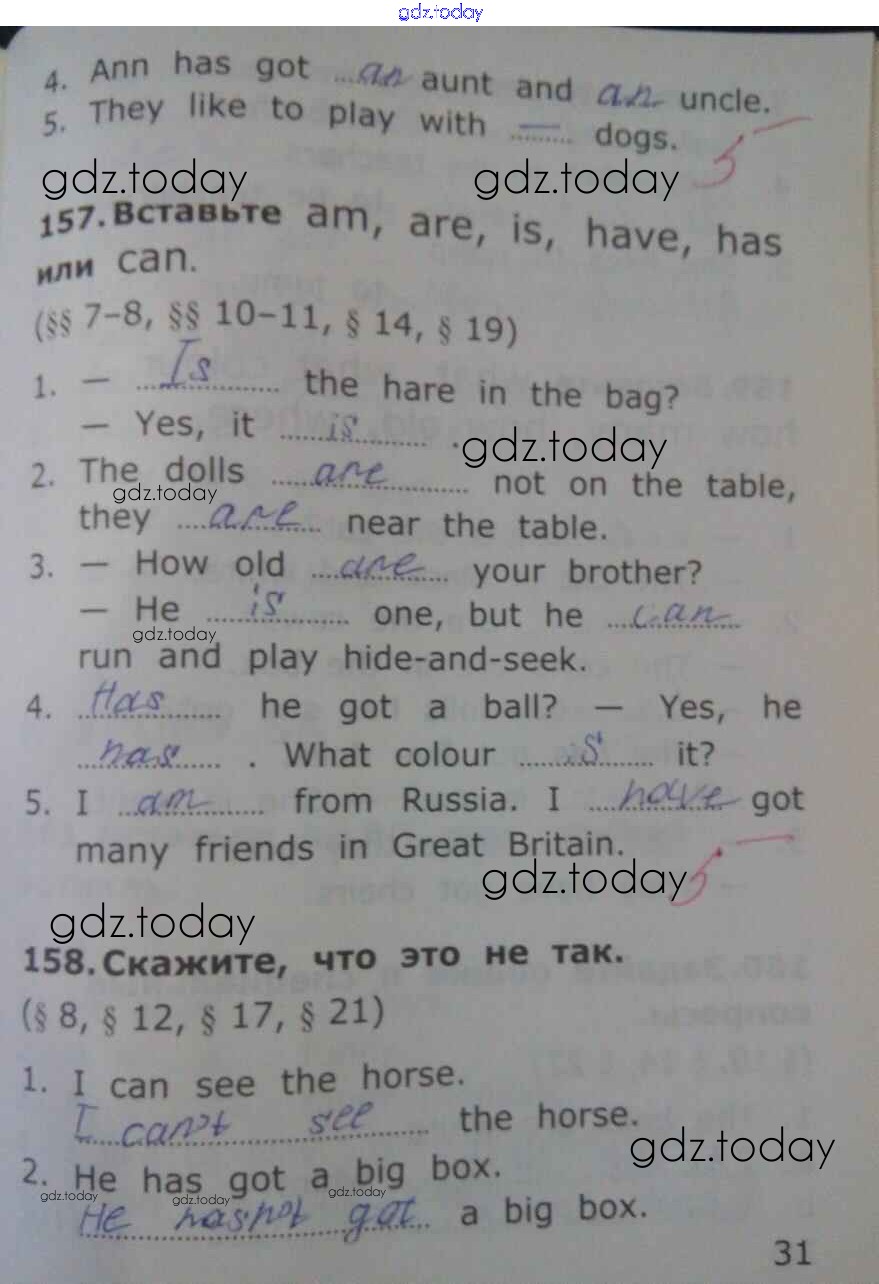 gdz.today
4. Ann has got an aunt and an uncle.
5. They like to play with — dogs.
5-
gdz.today gdz.today
157. Вставьте am, are, is, have, has
или can.
(§§ 7–8, §§ 10–11, § 14, § 19)
1. — Is the hare in the bag?
— Yes, it is .
gdz.today
2. The dolls are not on the table,
gdz.today
they are near the table.
3. — How old are your brother?
— He is one, but he can
gdz.today
run and play hide-and-seek.
4. Has he got a ball? — Yes, he
has . What colour is it?
5. I am from Russia. I have got
many friends in Great Britain.
gdz.today 5-
gdz.today
158. Скажите, что это не так.
(§ 8, § 12, § 17, § 21)
1. I can see the horse.
I can't see the horse.
gdz.today
2. He has got a big box.
gdz.today gdz.today gdz.today
He hasn't got a big box.
31